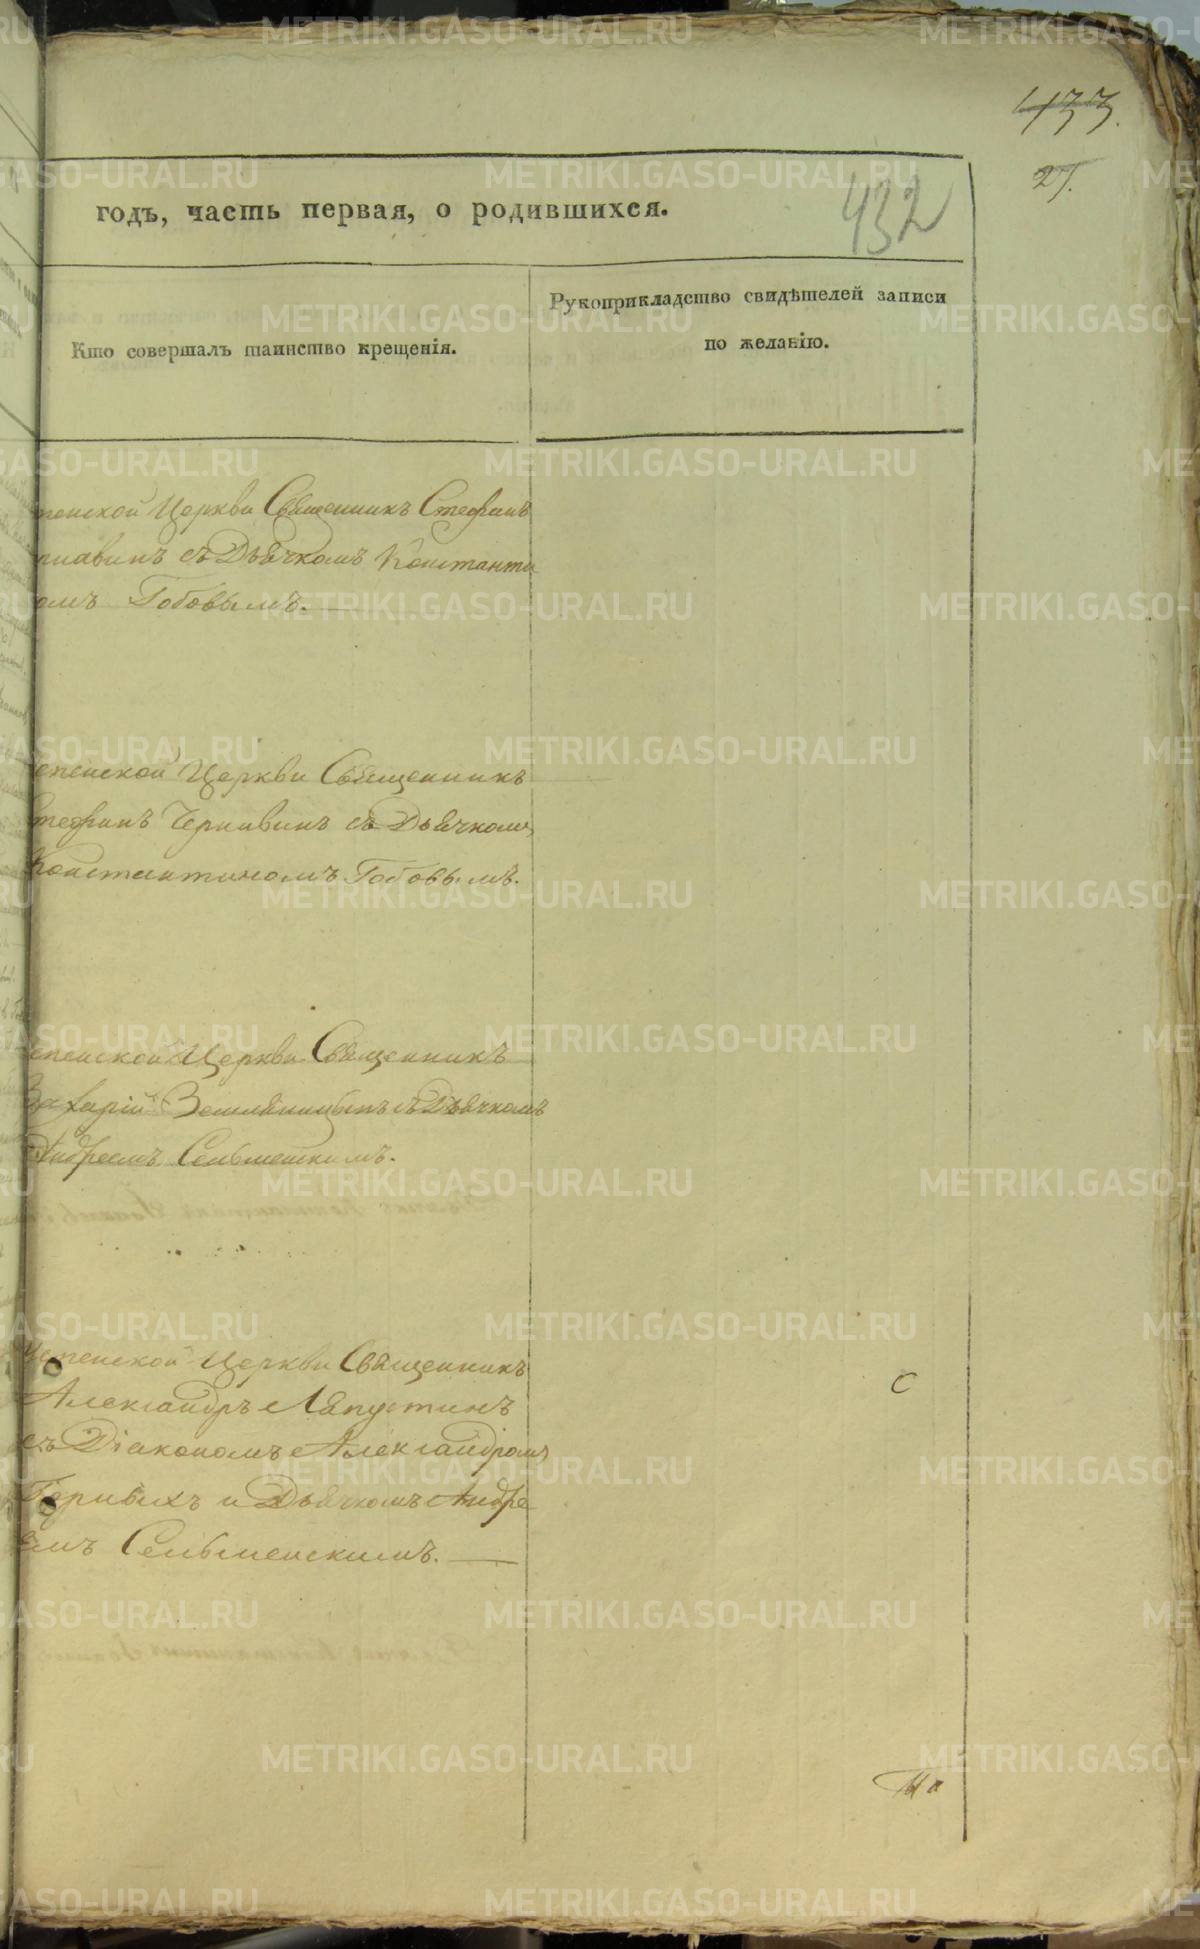 433.
27.
432
годъ, часть первая, о родившихся.
Кто совершалъ таинство крещенія.
Рукоприкладство свидѣтелей записи
по желанію.
пенской Церкви Священникъ Стефанъ
съ Дьячкомъ Константи
омъ Гобовымъ.
спенской Церкви Священникъ
Стефанъ Чернавинъ съ Дьячкомъ
Константиномъ Гобовымъ.
спенской Церкви Священникъ
Захарій Земляницынъ съ Дьячкомъ
Андреемъ Сельменскимъ.
Успенской Церкви Священникъ
Александръ Ляпустинъ
съ Діакономъ Александромъ
и Дьячкомъ Андре
емъ Сельменскимъ.
С
На
METRIKI.GASO-URAL.RU